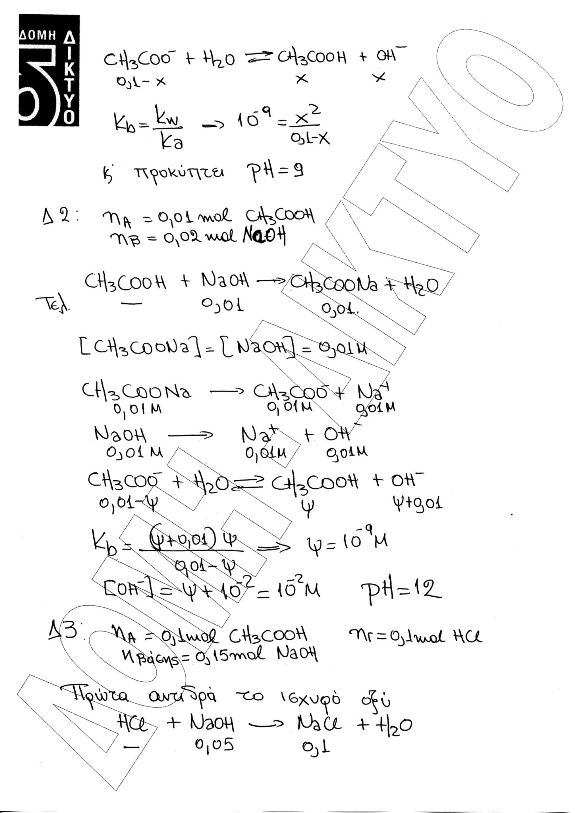 ΔΟΜΗ
ΔΙΚΤΥΟ
CH₃COO⁻ + H₂O ⇌ CH₃COOH + OH⁻
0,1-x x x
Kb = Kw/Ka → 10⁻⁹ = x²/0,1-x
κ' προκύπτει pH = 9
Δ2: nA = 0,01 mol CH₃COOH
nB = 0,02 mol NaOH
CH₃COOH + NaOH → CH₃COONa + H₂O
Τελ — 0,01 0,01.
[CH₃COONa] = [NaOH] = 0,01M
CH₃COONa → CH₃COO⁻ + Na⁺
0,01M 0,01M 0,01M
NaOH → Na⁺ + OH⁻
0,01M 0,01M 0,01M
CH₃COO⁻ + H₂O ⇌ CH₃COOH + OH⁻
0,01-ψ ψ ψ+0,01
Kb = (ψ+0,01)ψ/0,01-ψ ⇒ ψ = 10⁻⁹M
[OH⁻] = ψ + 10⁻² = 10⁻²M pH = 12
Δ3: nA = 0,1mol CH₃COOH nΓ = 0,1mol HCl
nβάσης = 0,15mol NaOH
Πρώτα αντιδρά το ισχυρό οξύ
HCl + NaOH → NaCl + H₂O
— 0,05 0,1
ΔΟΜΗ ΔΙΚΤΥΟ